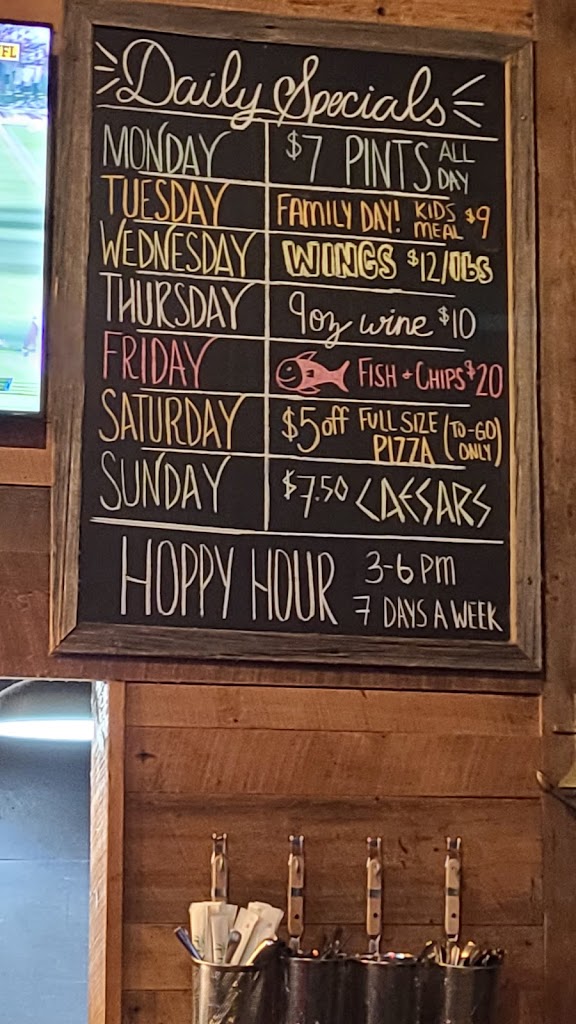 NFL
Daily Specials
MONDAY $7 PINTS ALL DAY
TUESDAY FAMILY DAY! KIDS MEAL $9
WEDNESDAY WINGS $12/lbs
THURSDAY 9oz wine $10
FRIDAY FISH + CHIPS $20
SATURDAY $5 off FULL SIZE PIZZA (TO-GO ONLY)
SUNDAY $7.50 CAESARS
HOPPY HOUR 3-6 PM
7 DAYS A WEEK